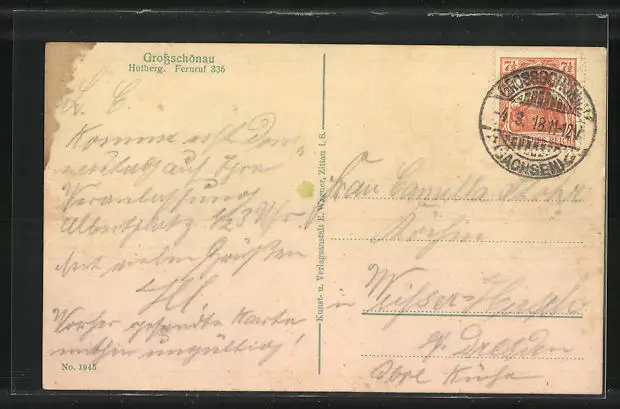 Großschönau
Hutberg. Fernruf 336
L. C.
Komme erst Don-
nerstag auf Ihre
Veranlassung
Albertplatz ½3 Uhr
Mit vielen Grüßen
Vorher gesandte Karte
mithin ungültig!
No. 1945
Kunst- u. Verlagsanstalt E. Wagner, Zittau i. S.
7½ 7½
GROSSSCHÖNAU
3. 18. 11-12 V.
(SACHSEN)
Frau Camilla
in Weisser-Hirsch
b/ Dresden